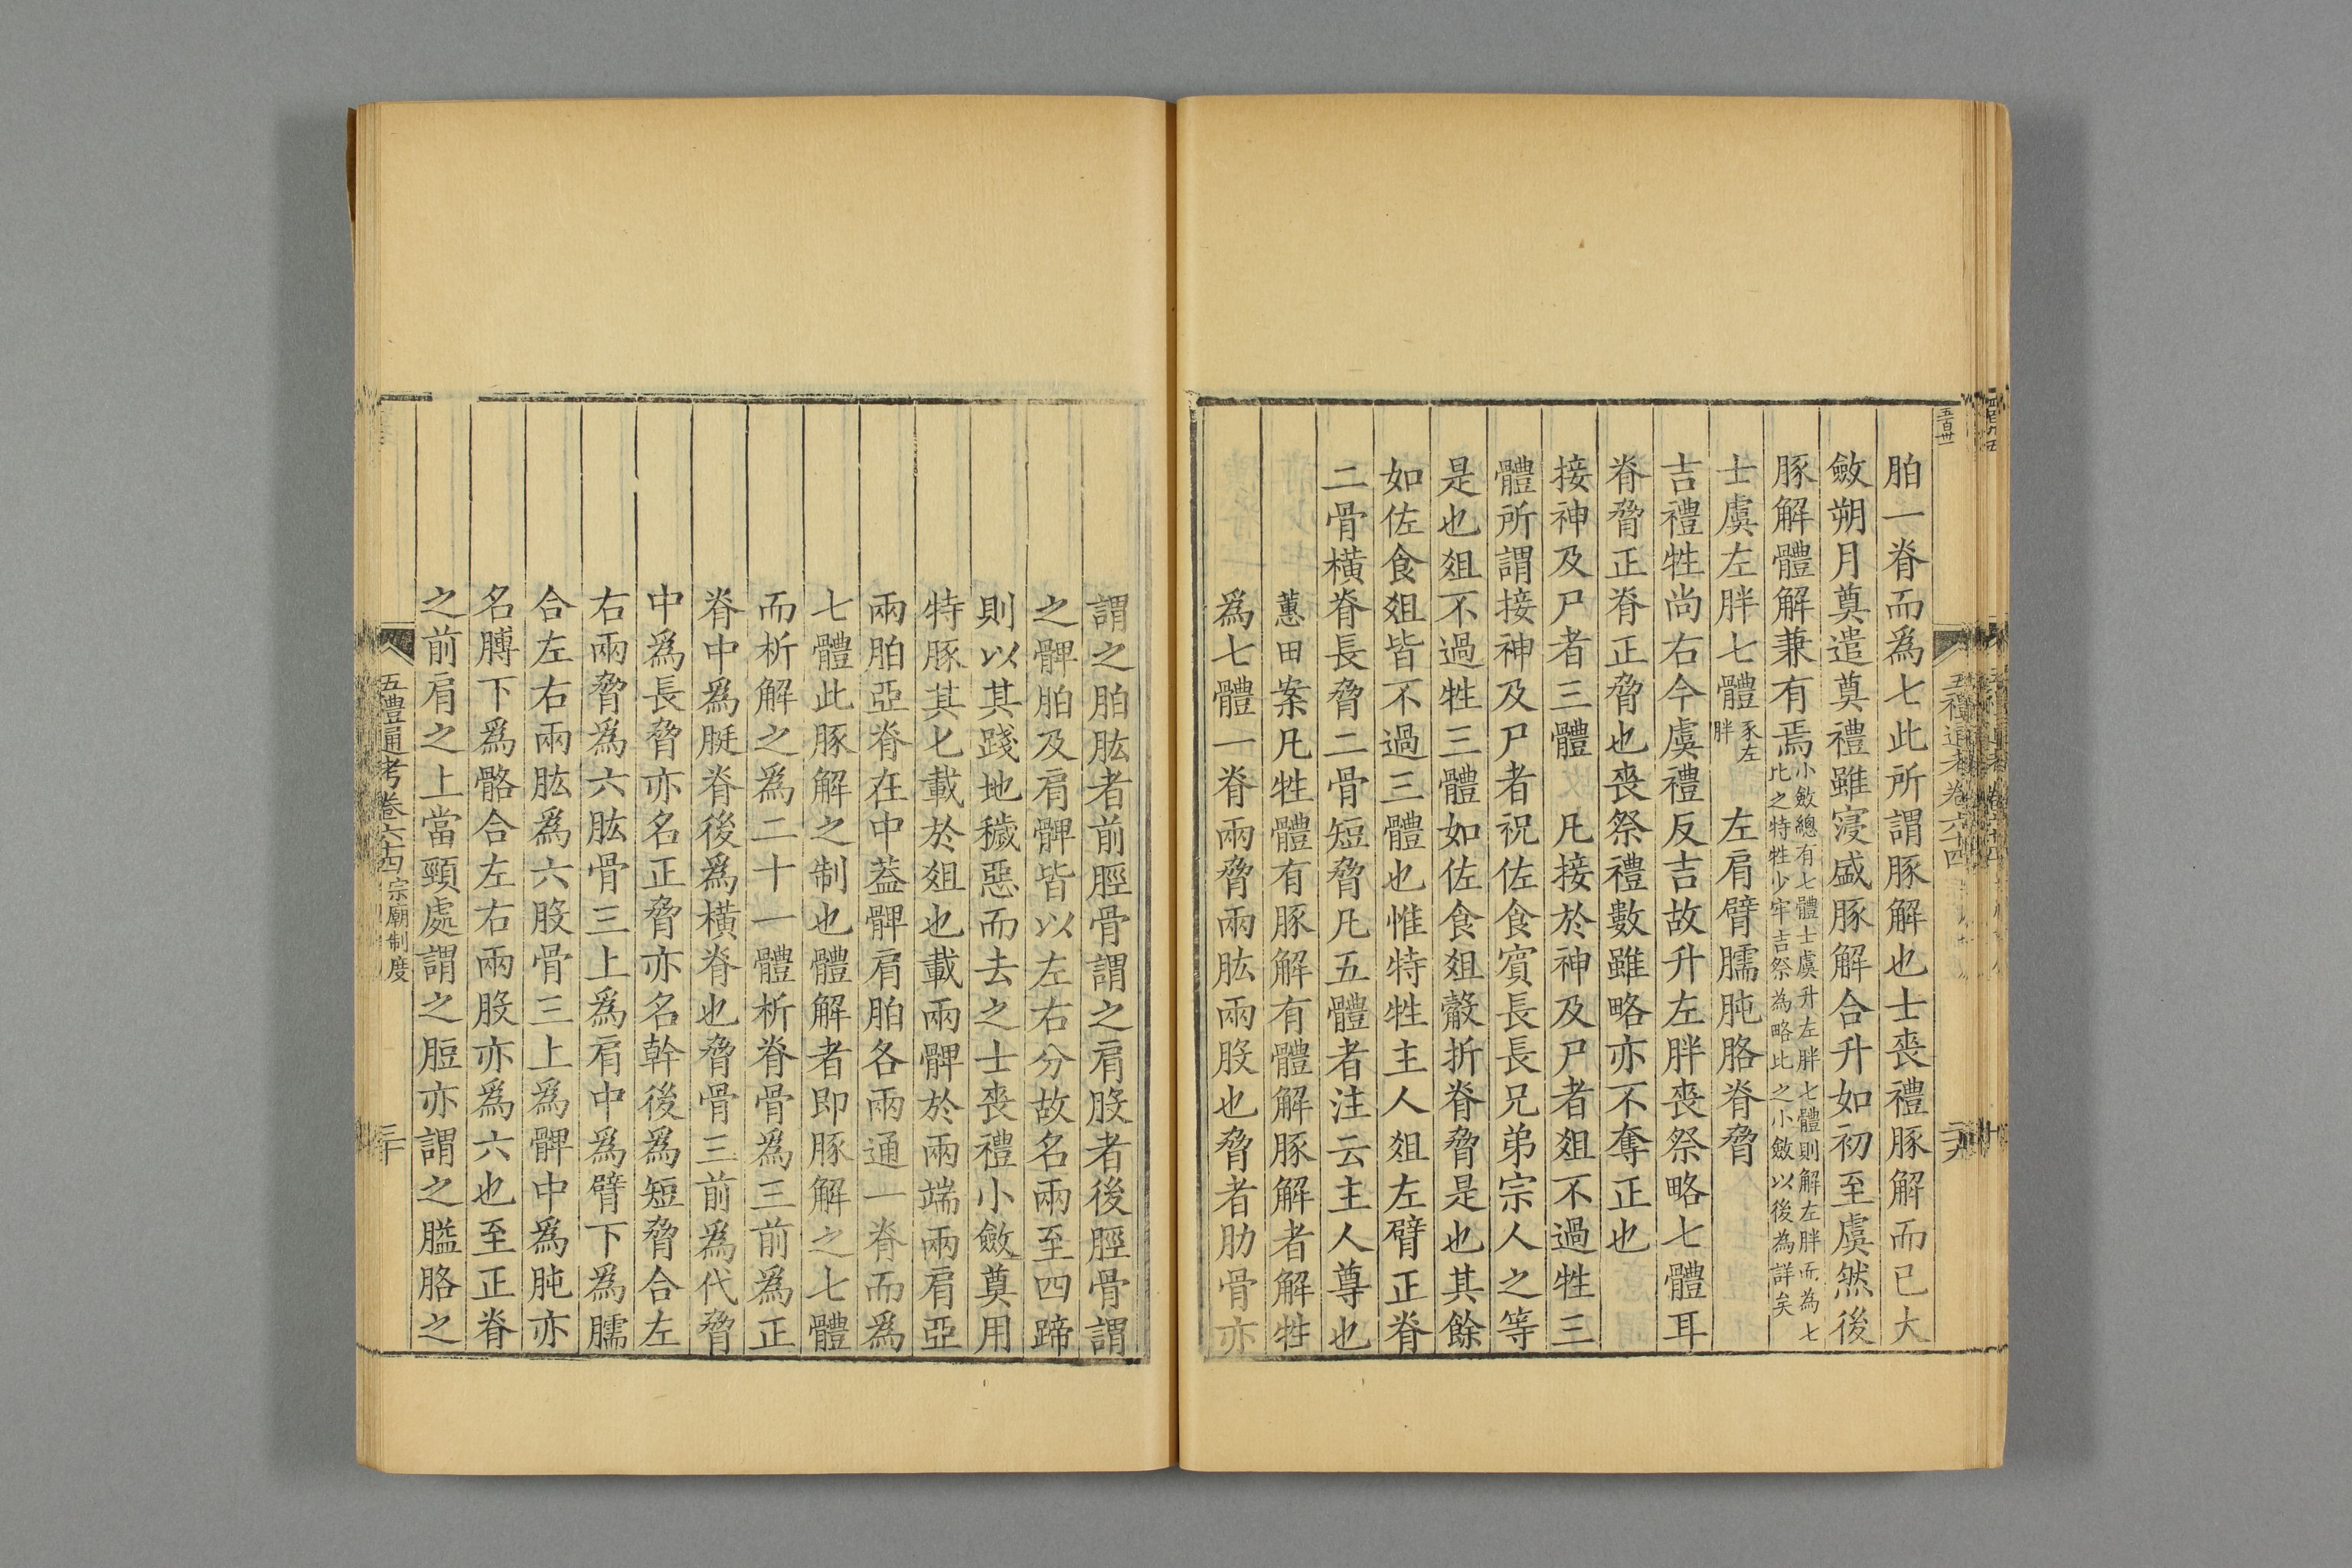 五百卅一
五禮通考卷六十四
胉一脊而爲七此所謂豚解也士喪禮豚解而已大
斂朔月奠遣奠禮雖寖盛豚解合升如初至虞然後
豚解體解兼有焉小斂總有七體士虞升左胖七體則解左胖而為七
比之特牲少牢吉祭為略比之小斂以後為詳矣
士虞左胖七體豕左胖 左肩臂臑肫胳脊脅
吉禮牲尚右今虞禮反吉故升左胖喪祭略七體耳
脊脅正脊正脅也喪祭禮數雖略亦不奪正也
接神及尸者三體 凡接於神及尸者俎不過牲三
體所謂接神及尸者祝佐食賓長長兄弟宗人之等
是也俎不過牲三體如佐食俎觳折脊脅是也其餘
如佐食俎皆不過三體也惟特牲主人俎左臂正脊
二骨橫脊長脅二骨短脅凡五體者注云主人尊也
蕙田案凡牲體有豚解有體解豚解者解牲
爲七體一脊兩脅兩肱兩股也脅者肋骨亦
謂之胉肱者前脛骨謂之肩股者後脛骨謂
之髀胉及肩髀皆以左右分故名兩至四蹄
則以其踐地穢惡而去之士喪禮小斂奠用
特豚其匕載於俎也載兩髀於兩端兩肩亞
兩胉亞脊在中蓋髀肩胉各兩通一脊而爲
七體此豚解之制也體解者即豚解之七體
而析解之爲二十一體析脊骨爲三前爲正
脊中爲脡脊後爲橫脊也脅骨三前爲代脅
中爲長脅亦名正脅亦名幹後爲短脅合左
右兩脅爲六肱骨三上爲肩中爲臂下爲臑
合左右兩肱爲六股骨三上爲髀中爲肫亦
名膞下爲骼合左右兩股亦爲六也至正脊
之前肩之上當頸處謂之脰亦謂之膉胳之
五禮通考卷六十四 宗廟制度 三十